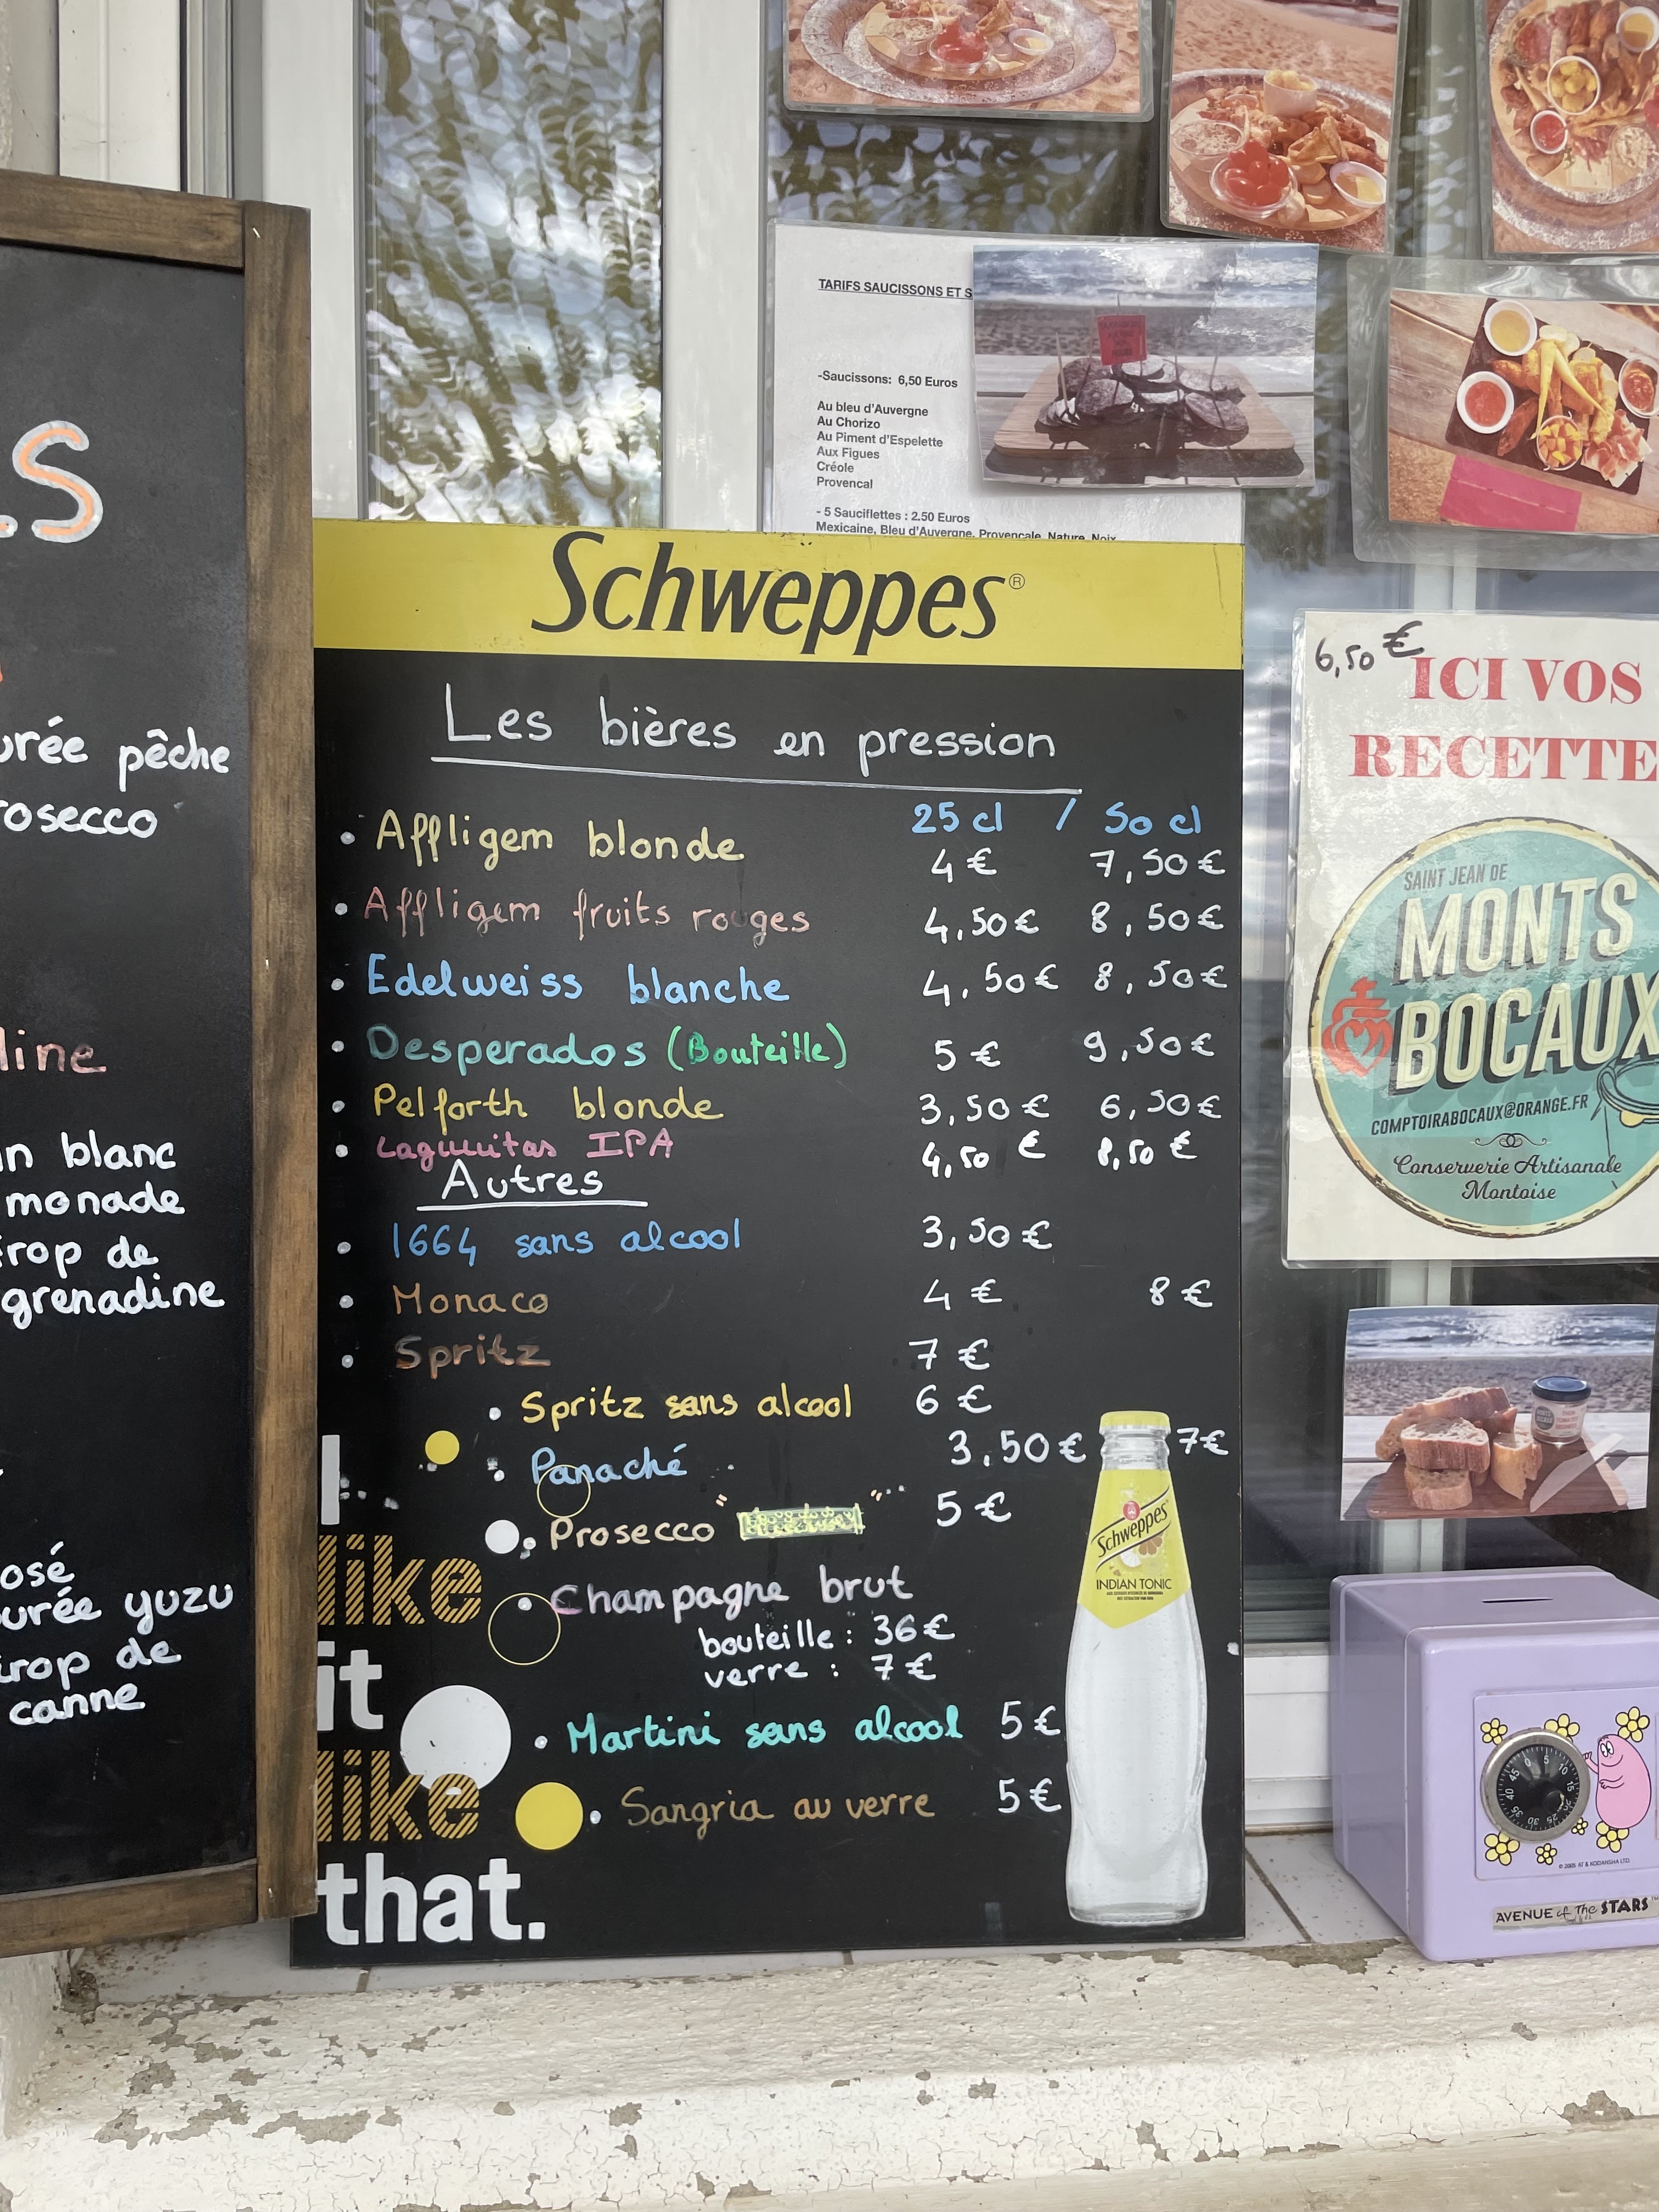 S
urée pêche
rosecco
line
n blanc
monade
irop de
grenadine
osé
urée yuzu
irop de
canne
TARIFS SAUCISSONS ET S
-Saucissons: 6,50 Euros
Au bleu d'Auvergne
Au Chorizo
Au Piment d'Espelette
Aux Figues
Créole
Provencal
- 5 Sauciflettes : 2.50 Euros
Mexicaine, Bleu d'Auvergne, Provençale, Nature, Noix
Schweppes®
Les bières en pression
25 cl / 50 cl
• Affligem blonde 4 € 7,50 €
• Affligem fruits rouges 4,50 € 8,50 €
• Edelweiss blanche 4,50 € 8,50 €
• Desperados (Bouteille) 5 € 9,50 €
• Pelforth blonde 3,50 € 6,50 €
• Lagunitas IPA 4,50 € 8,50 €
Autres
• 1664 sans alcool 3,50 €
• Monaco 4 € 8 €
• Spritz 7 €
• Spritz sans alcool 6 €
• Panaché 3.50 € 7 €
• Prosecco 5 €
• Champagne brut
bouteille : 36 €
verre : 7 €
• Martini sans alcool 5 €
• Sangria au verre 5 €
I
like
it
like
that.
Schweppes
INDIAN TONIC
6,50 €
ICI VOS
RECETTE
SAINT JEAN DE
MONTS
BOCAUX
COMPTOIRABOCAUX@ORANGE.FR
Conserverie Artisanale
Montoise
0 5 10 15 20 25 30 35 40 45
© 2005 AT & KODANSHA LTD.
AVENUE of The STARS